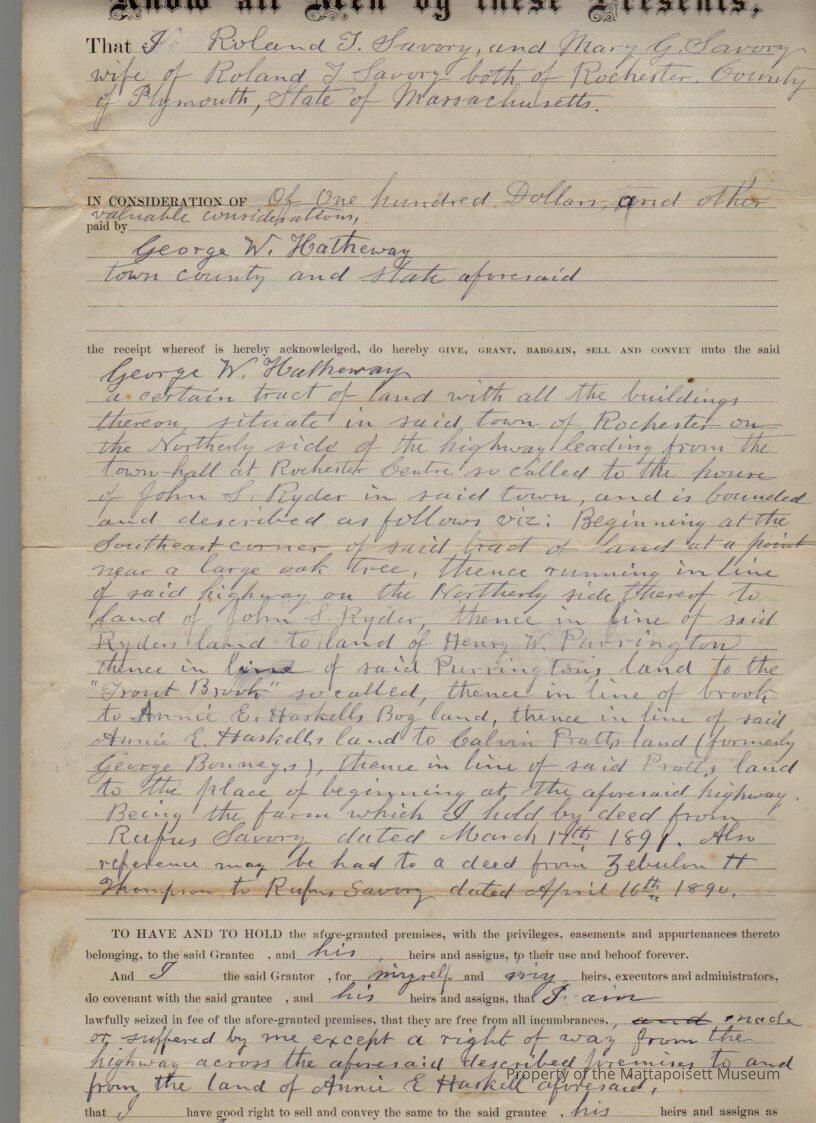 Know all Men by these Presents,
That I Roland T. Savory, and Mary G. Savory
wife of Roland T. Savory both of Rochester, County
of Plymouth, State of Massachusetts.
IN CONSIDERATION OF Of One hundred Dollars, and other
valuable considerations,
paid by
George W. Hatheway
town county and state aforesaid
the receipt whereof is hereby acknowledged, do hereby GIVE, GRANT, BARGAIN, SELL AND CONVEY unto the said
George W. Hatheway
a certain tract of land with all the buildings
thereon, situate in said town of Rochester on
the Northerly side of the highway leading from the
town-hall at Rochester Centre so called to the house
of John S. Ryder in said town, and is bounded
and described as follows viz: Beginning at the
Southeast corner of said tract of land at a point
near a large oak tree, thence running in line
of said highway on the Northerly side thereof to
land of John S. Ryder, thence in line of said
Ryders land to land of Henry W. Purrington
thence in line of said Purrington's land to the
"Trout Brook" so called, thence in line of brook
to Annie E. Haskells Bog land, thence in line of said
Annie E. Haskells land to Calvin Pratts land (formerly
George Bonneys), thence in line of said Pratts land
to the place of beginning at the aforesaid highway.
Being the farm which I hold by deed from
Rufus Savory dated March 1891. Also
reference may be had to a deed from Zebulon H
Thompson to Rufus Savory dated April 16th, 1890.
TO HAVE AND TO HOLD the afore-granted premises, with the privileges, easements and appurtenances thereto
belonging, to the said Grantee , and his , heirs and assigns, to their use and behoof forever.
And I the said Grantor , for myself and my heirs, executors and administrators,
do covenant with the said grantee , and his heirs and assigns, that I am
lawfully seized in fee of the afore-granted premises, that they are free from all incumbrances, and made
or suffered by me except a right of way from the
highway across the aforesaid described premises to and
from the land of Annie E Haskell aforesaid,
Property of the Mattapoisett Museum
that I have good right to sell and convey the same to the said grantee , his heirs and assigns as